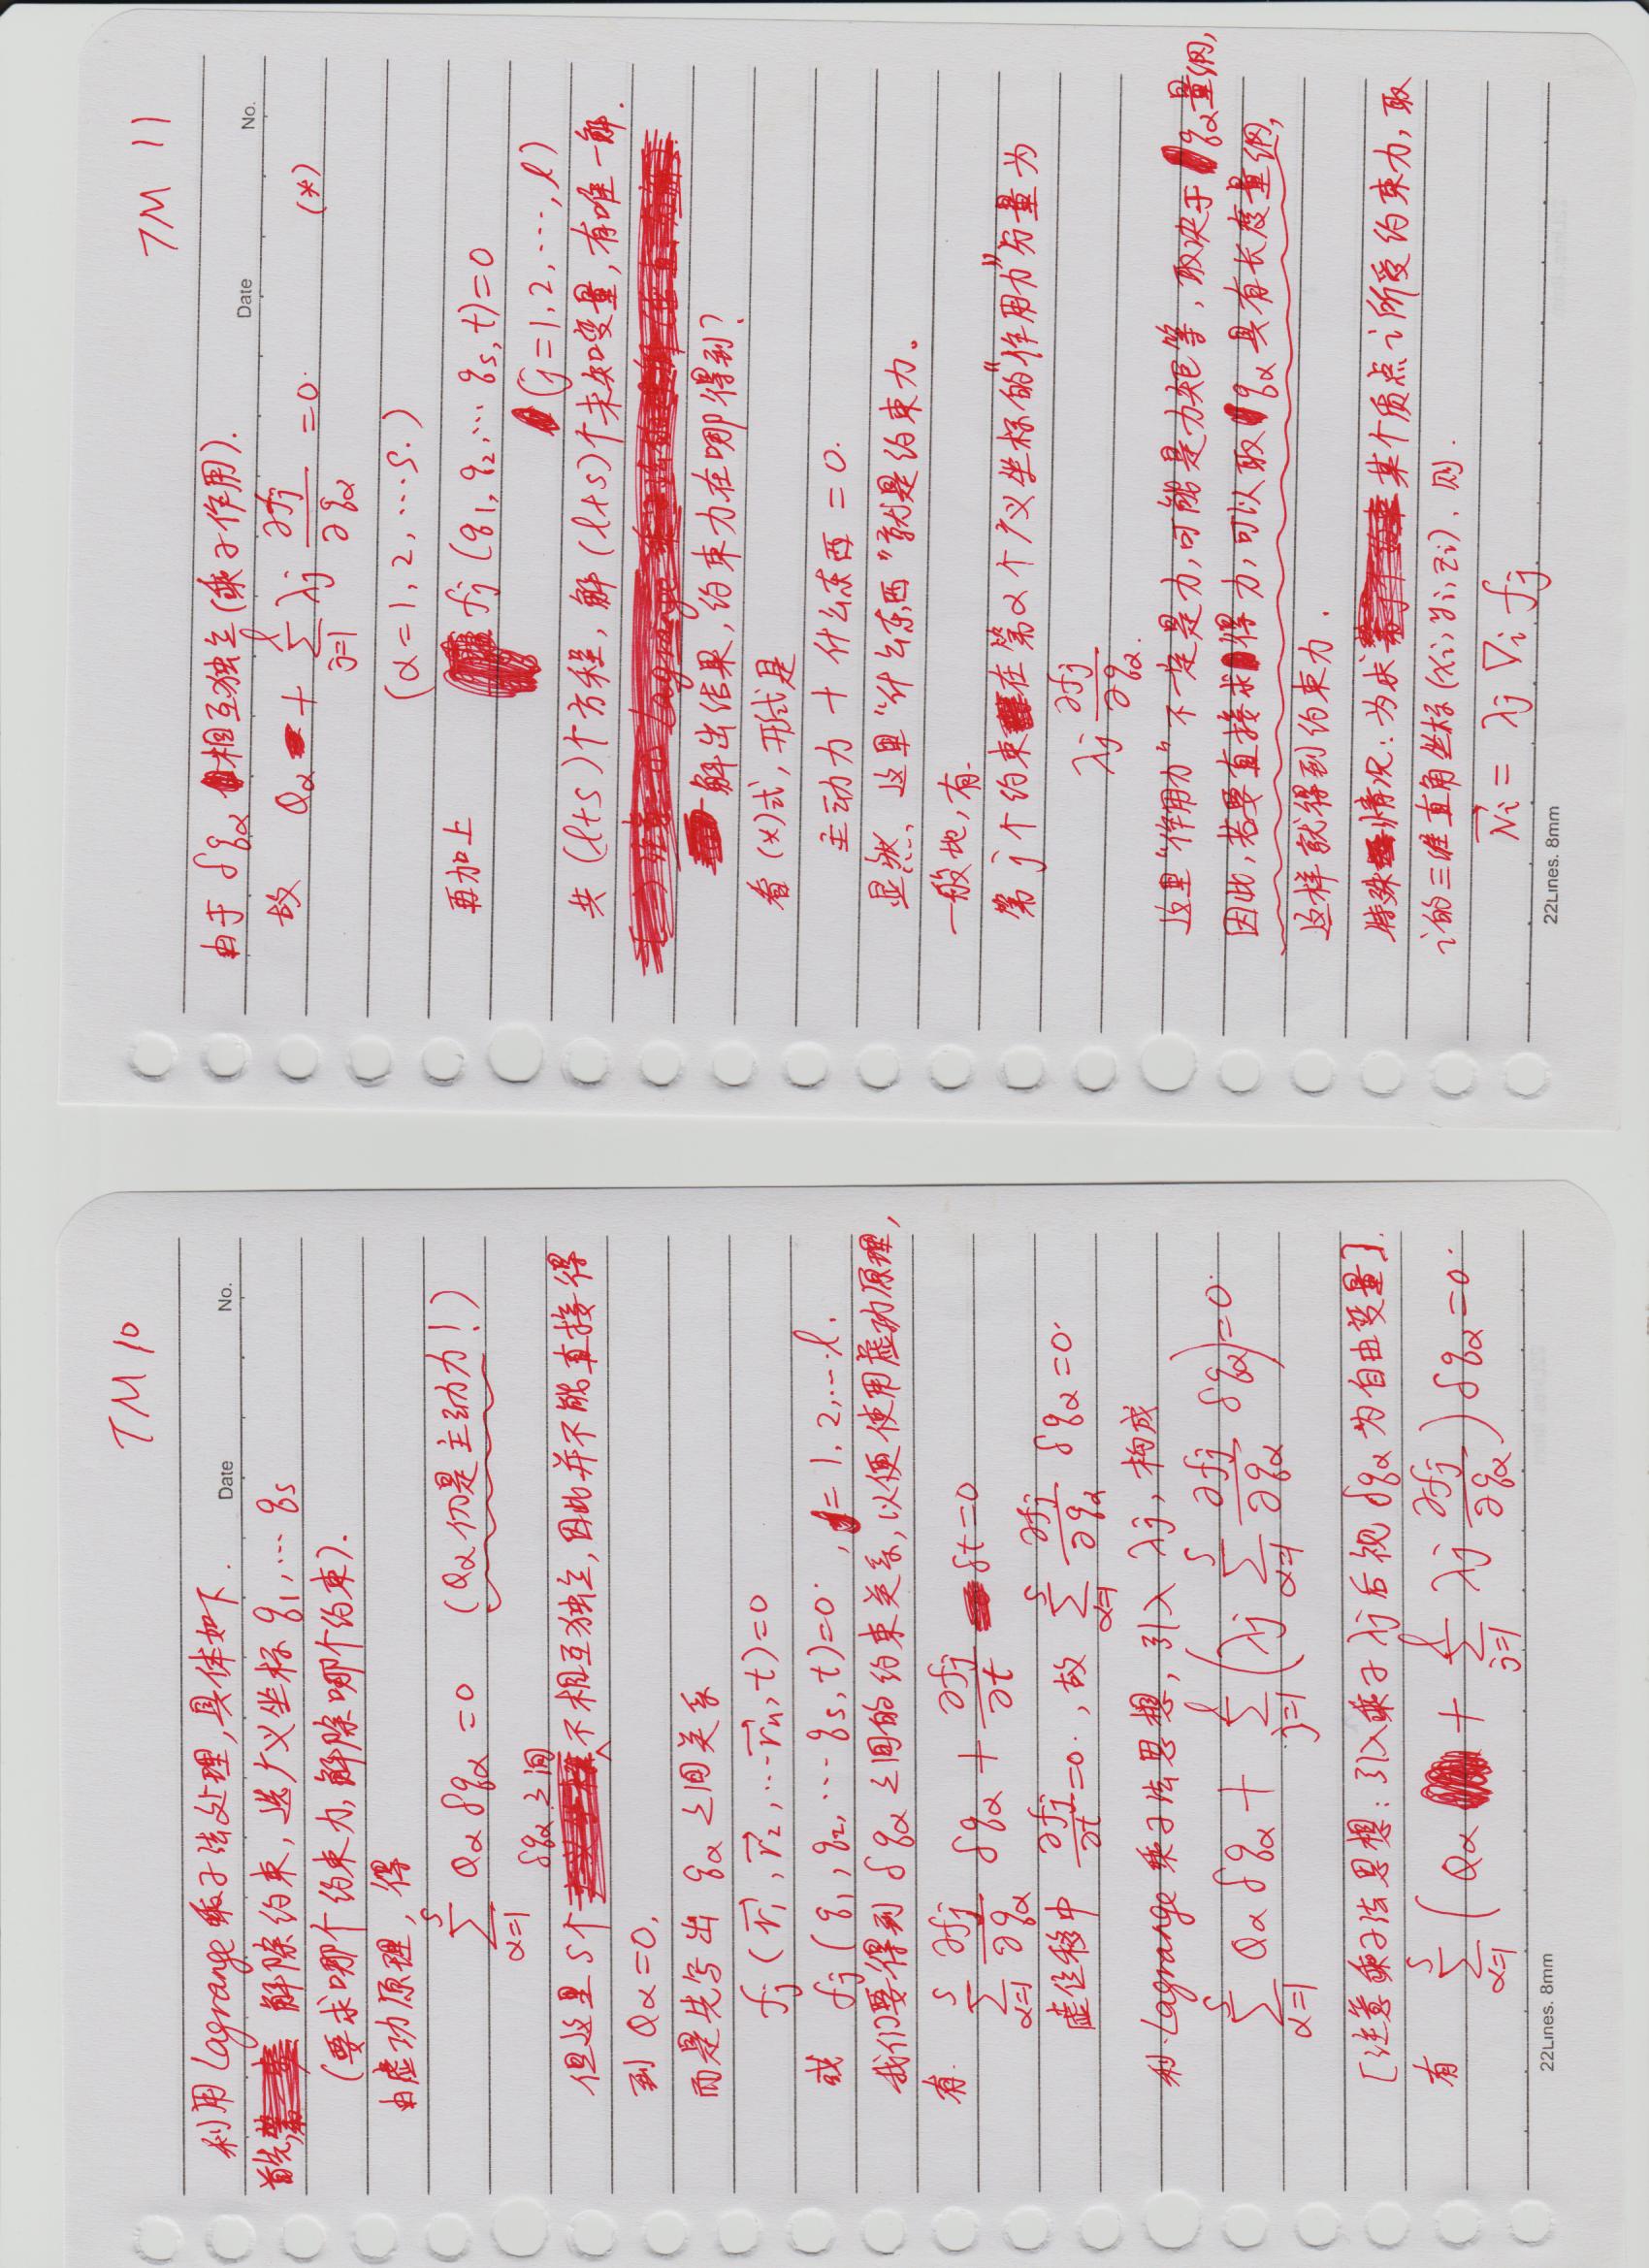 TM 10
利用 Lagrange 乘子法处理,具体如下.
Date No.
首先, 解除约束, 选广义坐标 q₁, … qs
(要求哪个约束力, 解除哪个约束).
由虚功原理, 得
∑_{α=1}^{s} Qα δqα = 0 (Qα 仍是主动力!)
但这里 s 个 δqα 之间 不相互独立, 因此并不能直接得
到 Qα = 0,
而是先写出 qα 之间关系
fj (r⃗₁, r⃗₂, … r⃗n, t) = 0
或 fj (q₁, q₂, … qs, t) = 0. , j = 1, 2, … l.
我们要得到 δqα 之间的约束关系, 以便使用虚功原理,
有. ∑_{α=1}^{s} ∂fj/∂qα δqα + ∂fj/∂t δt = 0
虚位移中 ∂fj/∂t = 0. , 故 ∑_{α=1}^{s} ∂fj/∂qα δqα = 0.
利. Lagrange 乘子法思想, 引入 λj, 构成
∑_{α=1}^{s} Qα δqα + ∑_{j=1}^{l} (λj ∑_{α=1}^{s} ∂fj/∂qα δqα) = 0.
[注意乘子法思想: 引入乘子 λj 后视 δqα 为自由变量].
有 ∑_{α=1}^{s} (Qα + ∑_{j=1}^{l} λj ∂fj/∂qα) δqα = 0.
22Lines. 8mm
TM 11
由于 δqα 相互独立 (乘子作用).
Date No.
故 Qα + ∑_{j=1}^{l} λj ∂fj/∂qα = 0. (*)
(α = 1, 2, … s.)
再加上 fj (q₁, q₂, … qs, t) = 0
(j = 1, 2, …, l)
共 (l+s) 个方程, 解 (l+s) 个未知变量, 有唯一解.
解出结果, 约束力在哪得到?
看 (*) 式, 形式是
主动力 + 什么东西 = 0.
显然, 这里“什么东西”就是约束力。
一般地, 有.
第 j 个约束在第 α 个广义坐标的“作用力”分量为
λj ∂fj/∂qα.
这里“作用力”不一定是力, 可能是力矩等, 取决于 qα 量纲,
因此, 若要直接求得力, 可以取 qα 具有长度量纲,
这样就得到约束力.
特殊情况: 为求某个质点 i 所受约束力, 取
i 的三维直角坐标 (xi, yi, zi). 则.
N⃗i = λj ∇i fj
22Lines. 8mm